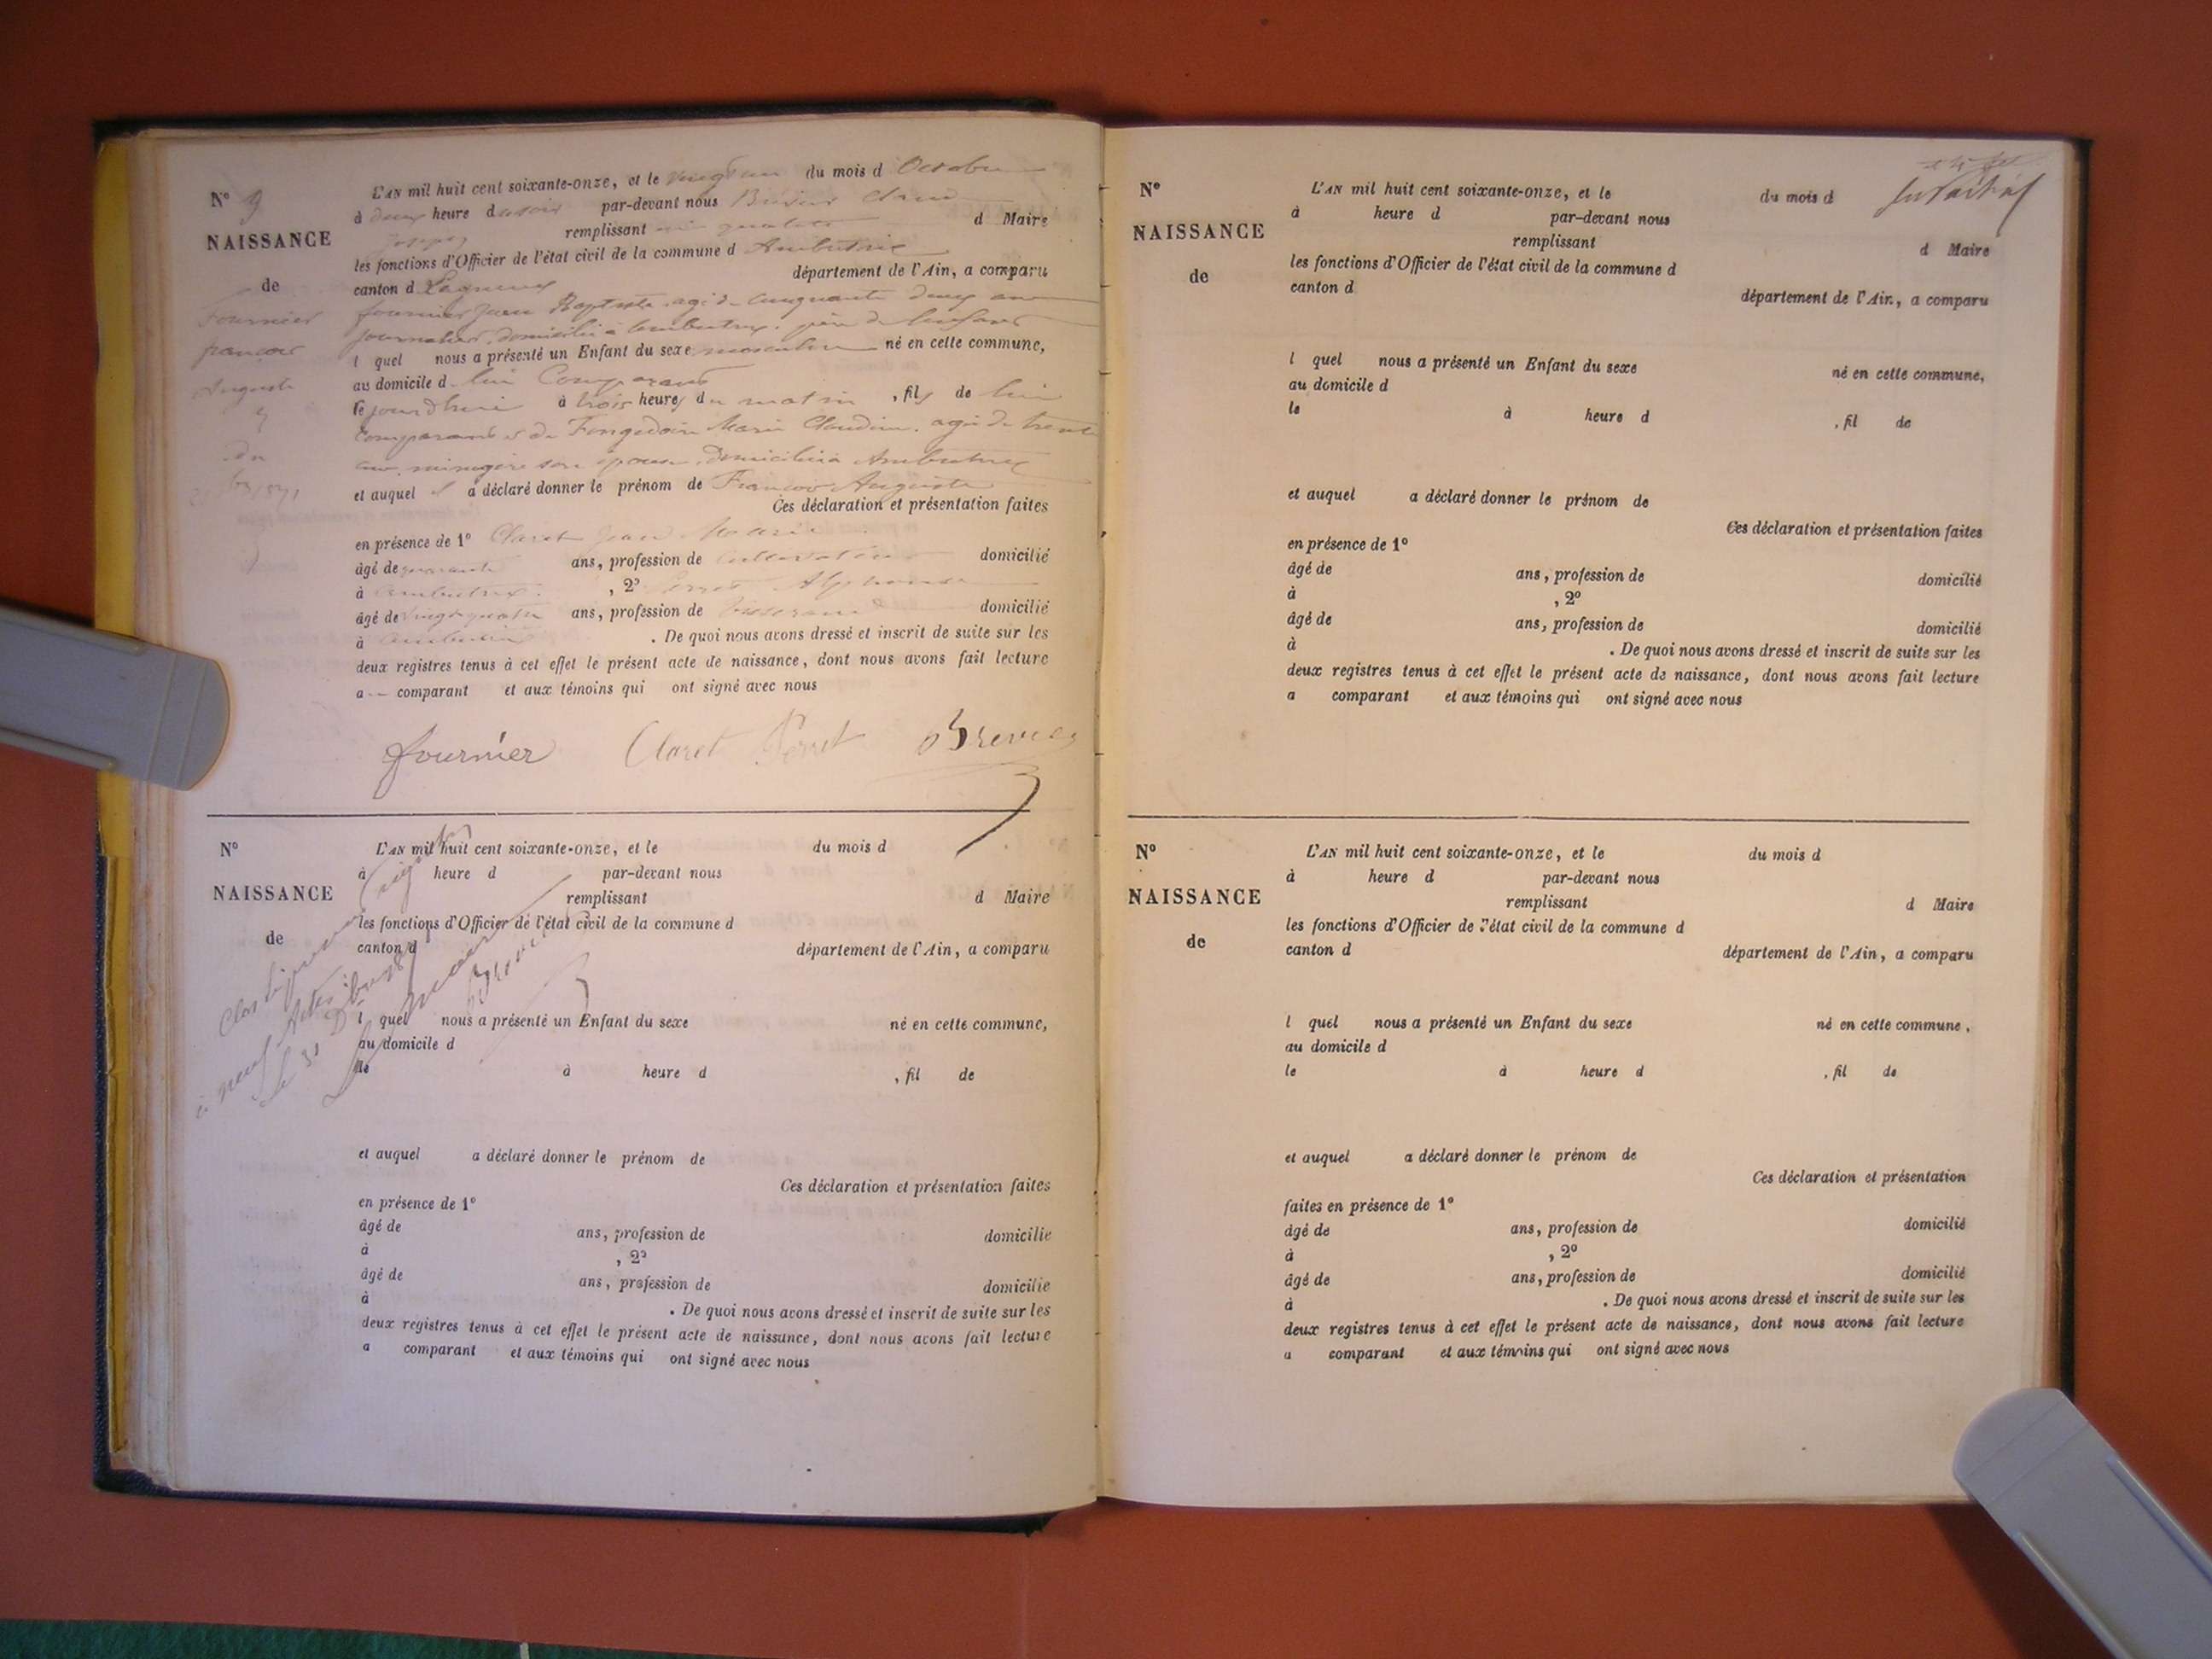 N° 9
NAISSANCE
de
Fournier
françois
Auguste
du
L'AN mil huit cent soixante-onze, et le vingt un du mois d Octobre
à deux heure du soir par-devant nous Brevier Claude
Joseph remplissant d Maire
les fonctions d'Officier de l'état civil de la commune d Ambutrix
canton d Lagnieu département de l'Ain, a comparu
fournier Jean Baptiste agé de Cinquante deux ans
journalier, domicilié à Ambutrix. père de l'enfant
l quel nous a présenté un Enfant du sexe masculin né en cette commune,
au domicile d lui Comparant
le jourdhui à trois heures du matin , fils de lui
comparant et de Marie Claudine. agée de trente
ans, ménagère son épouse, domiciliée à Ambutrix
et auquel il a déclaré donner le prénom de Francois Auguste
Ces déclaration et présentation faites
en présence de 1° Claret Jean Marie
âgé de quarante ans, profession de cultivateur domicilié
à Ambutrix , 2° Perret Alphonse
âgé de vingt quatre ans, profession de tisserand domicilié
à Ambutrix . De quoi nous avons dressé et inscrit de suite sur les
deux registres tenus à cet effet le présent acte de naissance, dont nous avons fait lecture
a comparant et aux témoins qui ont signé avec nous
fournier Claret Perret Brevier
N°
NAISSANCE
de
L'AN mil huit cent soixante-onze, et le du mois d
à heure d par-devant nous
remplissant d Maire
les fonctions d'Officier de l'état civil de la commune d
canton d département de l'Ain, a comparu
l quel nous a présenté un Enfant du sexe né en cette commune,
au domicile d
le à heure d , fil de
et auquel a déclaré donner le prénom de
Ces déclaration et présentation faites
en présence de 1°
âgé de ans, profession de domicilié
à , 2°
âgé de ans, profession de domicilié
à . De quoi nous avons dressé et inscrit de suite sur les
deux registres tenus à cet effet le présent acte de naissance, dont nous avons fait lecture
a comparant et aux témoins qui ont signé avec nous
Clos
à neuf Actes
le 31 Xbre
Le maire
Brevier
N°
NAISSANCE
de
L'AN mil huit cent soixante-onze, et le du mois d
à heure d par-devant nous
remplissant d Maire
les fonctions d'Officier de l'état civil de la commune d
canton d département de l'Ain, a comparu
l quel nous a présenté un Enfant du sexe né en cette commune,
au domicile d
le à heure d , fil de
et auquel a déclaré donner le prénom de
Ces déclaration et présentation faites
en présence de 1°
âgé de ans, profession de domicilié
à , 2°
âgé de ans, profession de domicilié
à . De quoi nous avons dressé et inscrit de suite sur les
deux registres tenus à cet effet le présent acte de naissance, dont nous avons fait lecture
a comparant et aux témoins qui ont signé avec nous
N°
NAISSANCE
de
L'AN mil huit cent soixante-onze, et le du mois d
à heure d par-devant nous
remplissant d Maire
les fonctions d'Officier de l'état civil de la commune d
canton d département de l'Ain, a comparu
l quel nous a présenté un Enfant du sexe né en cette commune,
au domicile d
le à heure d , fil de
et auquel a déclaré donner le prénom de
Ces déclaration et présentation
faites en présence de 1°
âgé de ans, profession de domicilié
à , 2°
âgé de ans, profession de domicilié
à . De quoi nous avons dressé et inscrit de suite sur les
deux registres tenus à cet effet le présent acte de naissance, dont nous avons fait lecture
a comparant et aux témoins qui ont signé avec nous